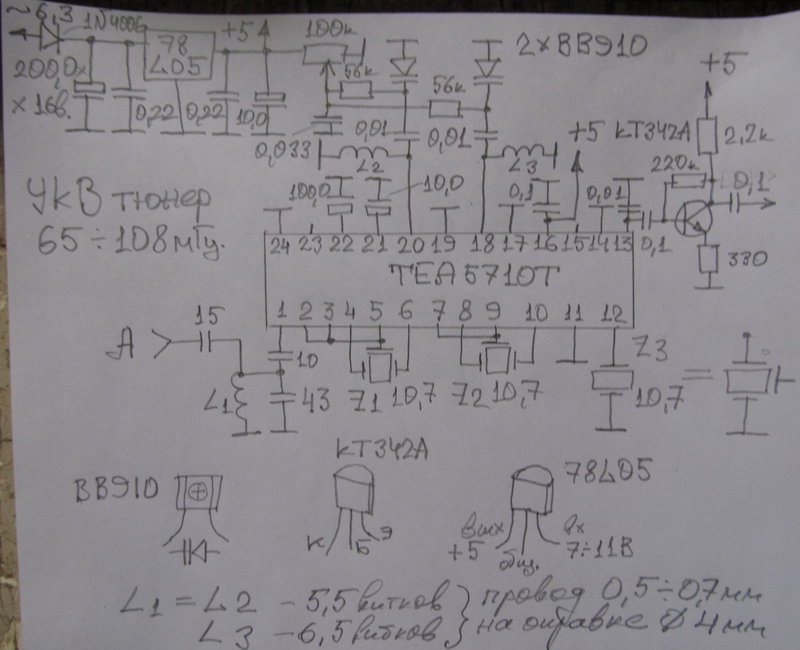 ~6,3 1N4006
+5
100к
2×BB910
78
L05
200,0×
×16в.
0,22 0,22 10,0
56к
56к
+5
0,033
0,01
0,01
L2
L3
+5 КТ342А
2,2к
220к
0,1
УКВ тюнер
65÷108мГц.
100,0
10,0
0,1
0,01
0,1
330
24 23 22 21 20 19 18 17 16 15 14 13
TEA5710T
1 2 3 4 5 6 7 8 9 10 11 12
А
15
10
L1
43
Z1 10,7 Z2 10,7
Z3
10,7
=
BB910
КТ342А
К Б Э
78L05
вых
+5
общ.
вх
7÷11В
L1 = L2 – 5,5 витков } провод 0,5÷0,7мм
L3 – 6,5 витков } на оправке Ø 4мм